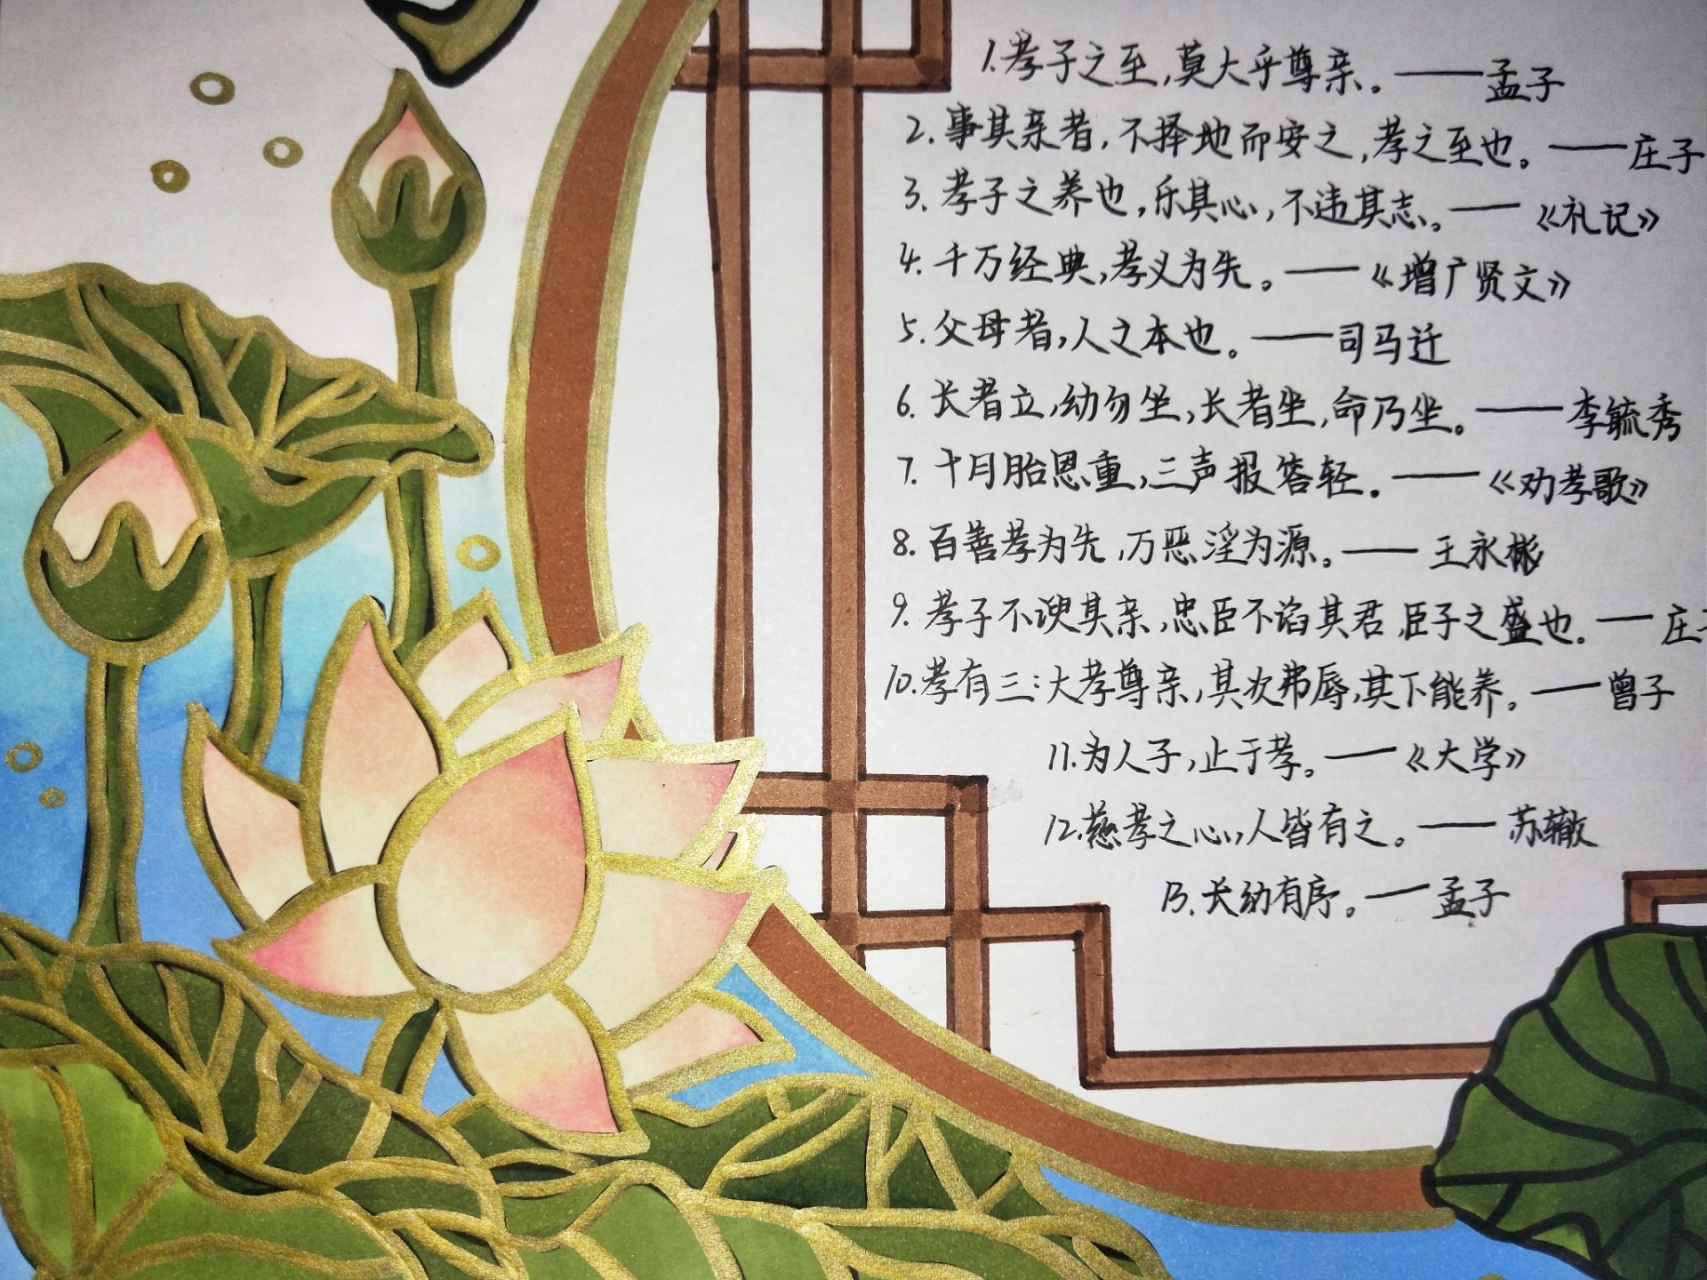 1.孝子之至，莫大乎尊亲。——孟子
2.事其亲者，不择地而安之，孝之至也。——庄子
3.孝子之养也，乐其心，不违其志。——《礼记》
4.千万经典，孝义为先。——《增广贤文》
5.父母者，人之本也。——司马迁
6.长者立，幼勿坐，长者坐，命乃坐。——李毓秀
7.十月胎恩重，三声报答轻。——《劝孝歌》
8.百善孝为先，万恶淫为源。——王永彬
9.孝子不谀其亲，忠臣不谄其君，臣子之盛也。——庄子
10.孝有三：大孝尊亲，其次弗辱，其下能养。——曾子
11.为人子，止于孝。——《大学》
12.慈孝之心，人皆有之。——苏辙
13.长幼有序。——孟子